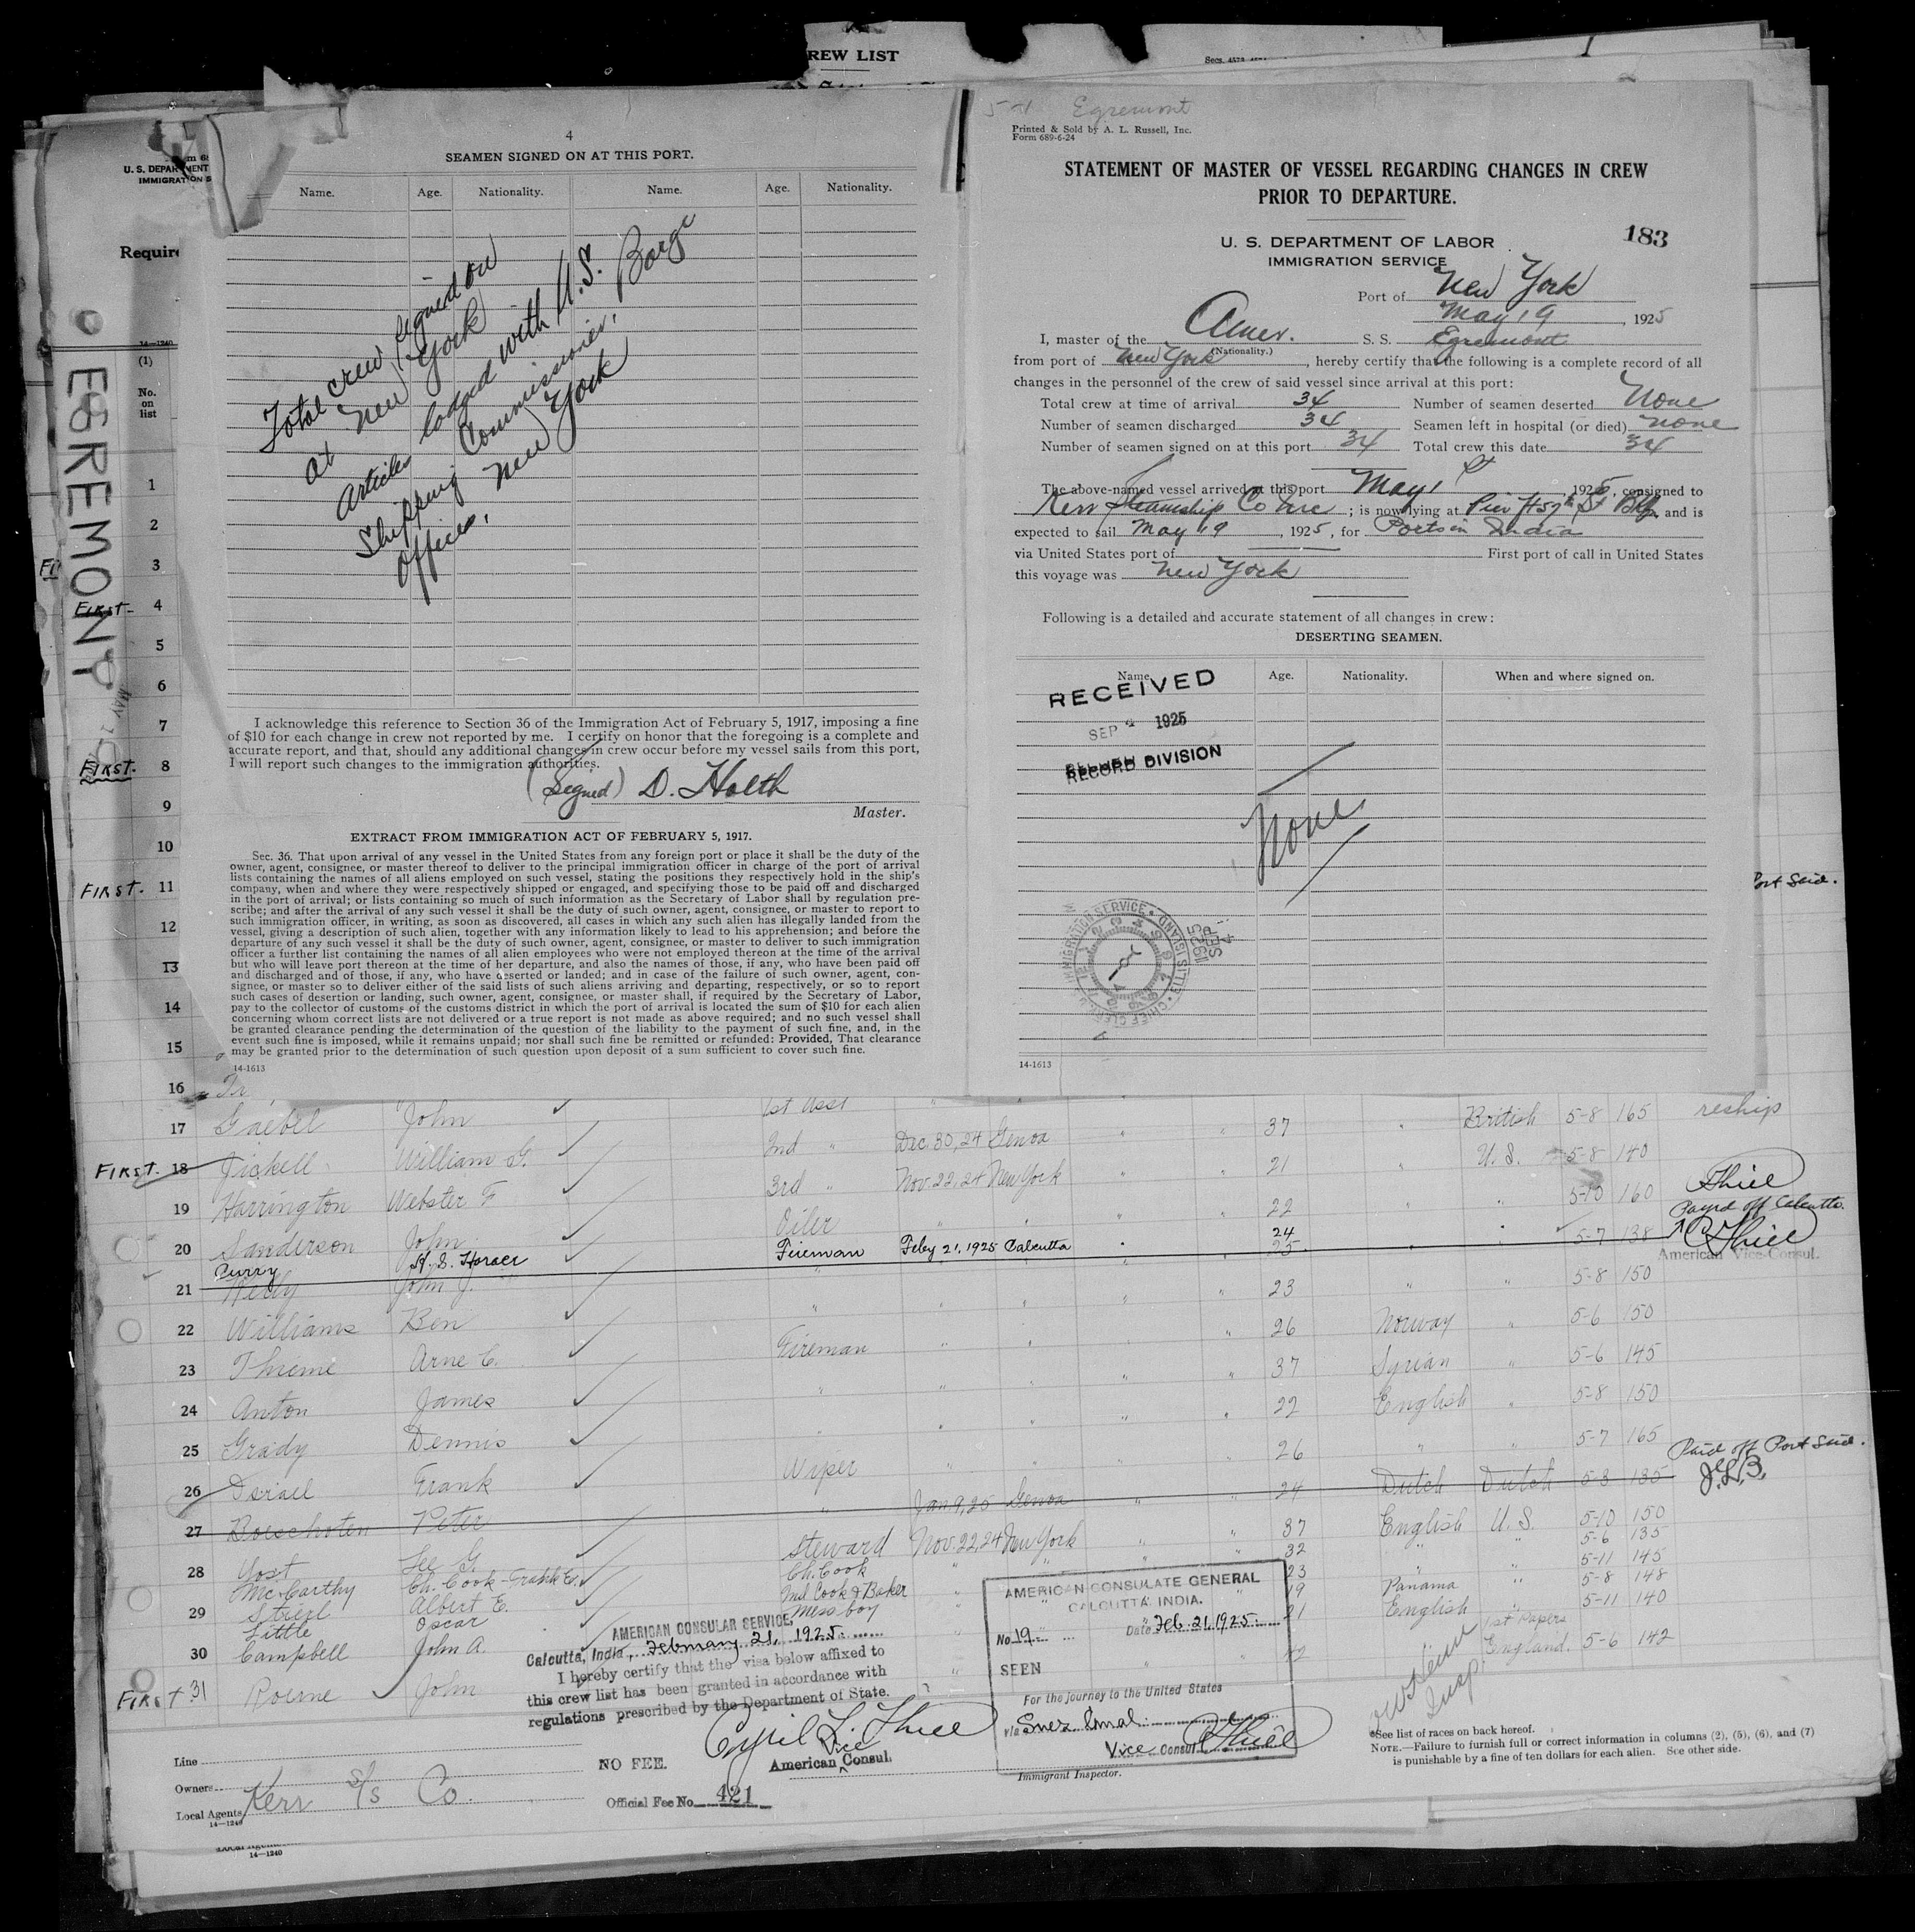 REW LIST
4
SEAMEN SIGNED ON AT THIS PORT.
Name. Age. Nationality. Name. Age. Nationality.
Total crew signed on
at New York
Articles lodged with U.S. Barge
Shipping Commissioner,
Office, New York
I acknowledge this reference to Section 36 of the Immigration Act of February 5, 1917, imposing a fine
of $10 for each change in crew not reported by me. I certify on honor that the foregoing is a complete and
accurate report, and that, should any additional changes in crew occur before my vessel sails from this port,
I will report such changes to the immigration authorities.
(Signed) D. Holth
Master.
EXTRACT FROM IMMIGRATION ACT OF FEBRUARY 5, 1917.
Sec. 36. That upon arrival of any vessel in the United States from any foreign port or place it shall be the duty of the
owner, agent, consignee, or master thereof to deliver to the principal immigration officer in charge of the port of arrival
lists containing the names of all aliens employed on such vessel, stating the positions they respectively hold in the ship's
company, when and where they were respectively shipped or engaged, and specifying those to be paid off and discharged
in the port of arrival; or lists containing so much of such information as the Secretary of Labor shall by regulation pre-
scribe; and after the arrival of any such vessel it shall be the duty of such owner, agent, consignee, or master to report to
such immigration officer, in writing, as soon as discovered, all cases in which any such alien has illegally landed from the
vessel, giving a description of such alien, together with any information likely to lead to his apprehension; and before the
departure of any such vessel it shall be the duty of such owner, agent, consignee, or master to deliver to such immigration
officer a further list containing the names of all alien employees who were not employed thereon at the time of the arrival
but who will leave port thereon at the time of her departure, and also the names of those, if any, who have been paid off
and discharged and of those, if any, who have deserted or landed; and in case of the failure of such owner, agent, con-
signee, or master so to deliver either of the said lists of such aliens arriving and departing, respectively, or so to report
such cases of desertion or landing, such owner, agent, consignee, or master shall, if required by the Secretary of Labor,
pay to the collector of customs of the customs district in which the port of arrival is located the sum of $10 for each alien
concerning whom correct lists are not delivered or a true report is not made as above required; and no such vessel shall
be granted clearance pending the determination of the question of the liability to the payment of such fine, and, in the
event such fine is imposed, while it remains unpaid; nor shall such fine be remitted or refunded: Provided, That clearance
may be granted prior to the determination of such question upon deposit of a sum sufficient to cover such fine.
14-1613
Egremont
Printed & Sold by A. L. Russell, Inc.
Form 689-6-24
STATEMENT OF MASTER OF VESSEL REGARDING CHANGES IN CREW
PRIOR TO DEPARTURE.
U. S. DEPARTMENT OF LABOR
IMMIGRATION SERVICE
183
Port of New York
May 19, 1925
I, master of the Amer. S. S. Egremont
(Nationality.)
from port of New York, hereby certify that the following is a complete record of all
changes in the personnel of the crew of said vessel since arrival at this port:
Total crew at time of arrival 34 Number of seamen deserted None
Number of seamen discharged 34 Seamen left in hospital (or died) none
Number of seamen signed on at this port 34 Total crew this date 34
The above-named vessel arrived at this port May 1st, 1925, consigned to
Kerr Steamship Co Inc; is now lying at Pier 457th St Bklp and is
expected to sail May 19, 1925, for Ports in India
via United States port of First port of call in United States
this voyage was New York
Following is a detailed and accurate statement of all changes in crew:
DESERTING SEAMEN.
Name. Age. Nationality. When and where signed on.
RECEIVED
SEP 4 1925
RECORD DIVISION
None
ELLIS ISLAND
SEP 4
1925
14-1613
U. S. DEPARTMENT
IMMIGRATION S
Require
14-1240
(1)
No.
on
list
EGREMONT
MAY 1
1
2
3
FIRST- 4
5
6
7
FIRST. 8
9
10
FIRST. 11
Port Said.
12
13
14
15
16
1st Asst
17 Gaebel John 2nd " Dec. 30, 24 Genoa " " 37 " British 5-8 165 reship
FIRST. 18 Jickell William G. 3rd " Nov. 22, 24 New York " " 21 " U. S. 5-8 140
19 Harrington Webster F Oiler " " " " 22 " " 5-10 160 Thiel
Payed off Calcutta.
20 Sanderson John 24 25 5-7 138 Thiel
Curry H. S. Horace Fireman Feby 21, 1925 Calcutta
American Vice-Consul.
21 John J. " " " " " 23 " " 5-8 150
22 Williams Ben Fireman " " " 26 Norway " 5-6 150
23 Thieme Arne C. " " " " " 37 Syrian " 5-6 145
24 Anton James " " " " " 22 English " 5-8 150
25 Grady Dennis Wiper " " " " 26 " " 5-7 165
Paid off Port Said.
J.L.B.
26 Israel Frank " Jan 9, 25 Genoa " " 24 Dutch Dutch 5-8 135
27 Boeschoten Peter Steward Nov. 22, 24 New York " 37 English U. S. 5-10 150
28 Yost Lee G. Ch. Cook 32 " " 5-6 135
McCarthy Ch. Cook - Frank E. 2nd Cook & Baker 23 5-11 145
29 Streel Albert E. Mess boy 19 Panama " 5-8 148
Little Oscar 21 English " 5-11 140
30 Campbell John A. 1st Papers
42 England. 5-6 142
FIRST 31 Rourne John
AMERICAN CONSULAR SERVICE,
Calcutta, India, February 21, 1925.
I hereby certify that the visa below affixed to
this crew list has been granted in accordance with
regulations prescribed by the Department of State.
Cyril L. Thiel
Vice
American Consul.
NO FEE.
Official Fee No. 421
AMERICAN CONSULATE GENERAL
CALCUTTA INDIA.
No 19 Date Feb. 21, 1925.
SEEN
For the journey to the United States
via Suez Canal.
Vice Consul Thiel
Immigrant Inspector.
Insp.
*See list of races on back hereof.
NOTE.—Failure to furnish full or correct information in columns (2), (5), (6), and (7)
is punishable by a fine of ten dollars for each alien. See other side.
Line
Owners
Local Agents Kerr S/S Co.
14-1240
14-1240